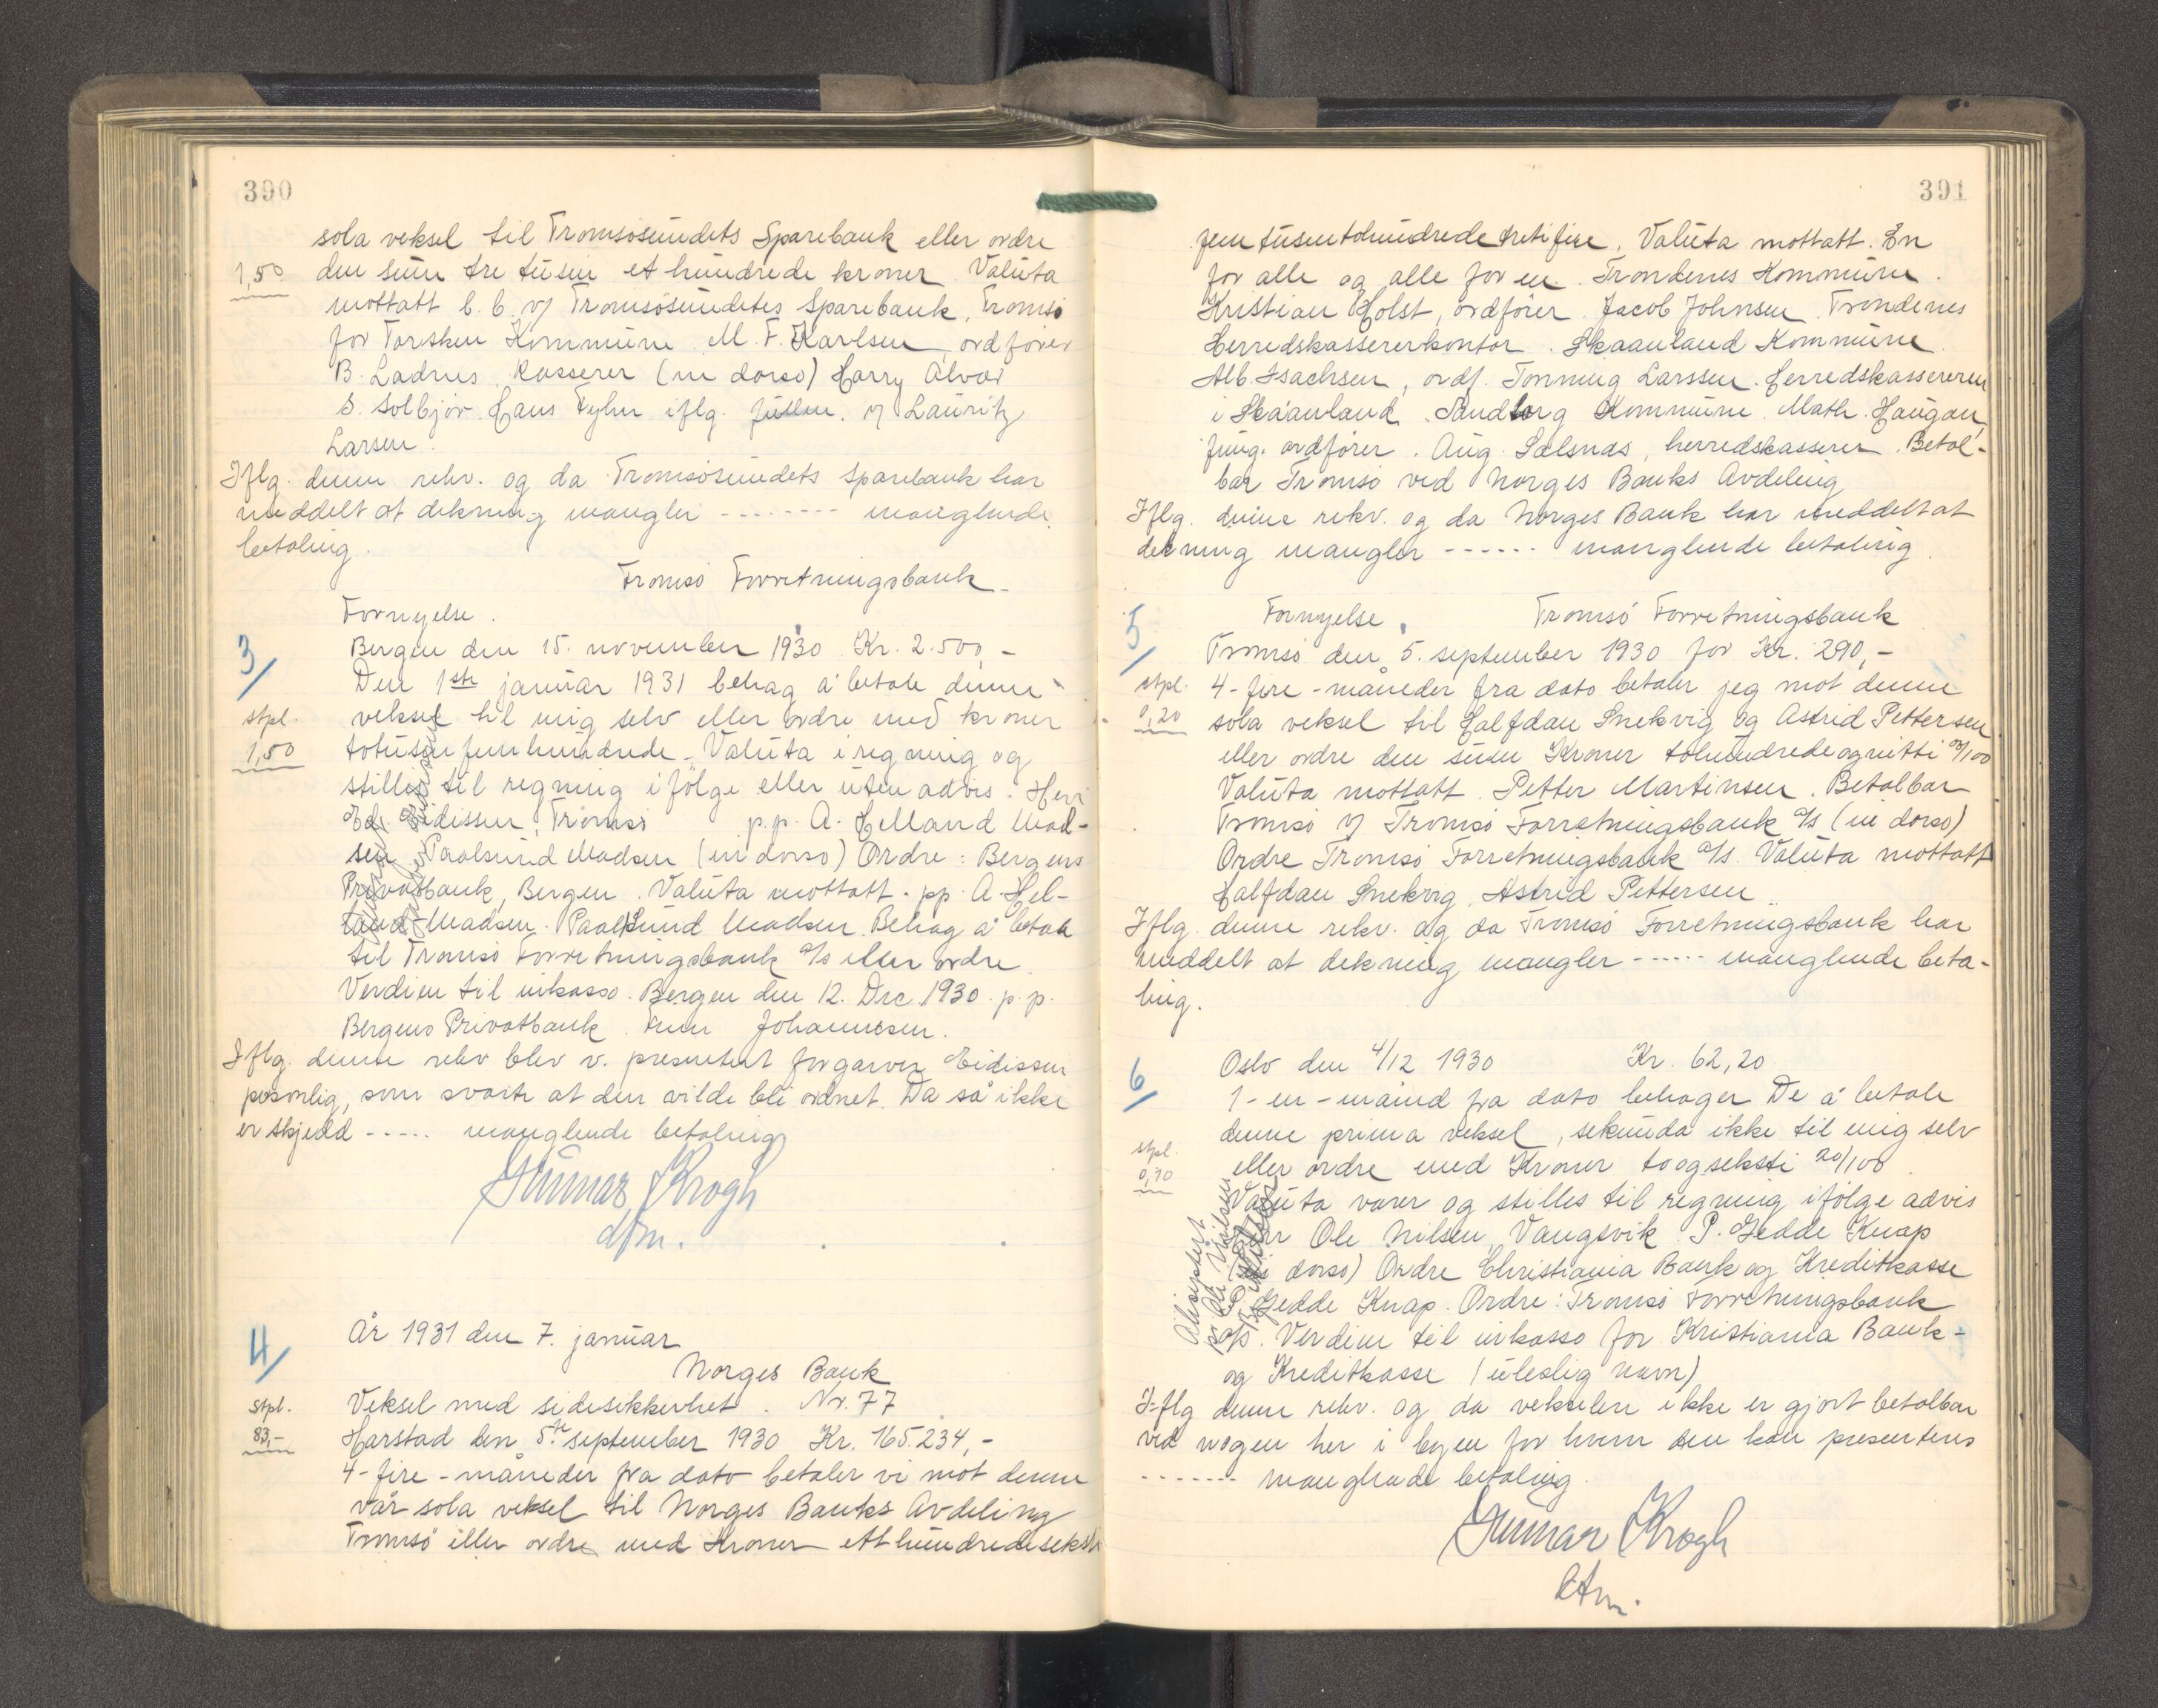 390
sola veksel til Tromsösundets Sparebank eller ordre
1,50 den sum tre tusen et hundrede kroner. Valuta
mottatt b. b. v/ Tromsösundets Sparebank, Tromsö
for Torsken Kommune M. F. Karlsen, ordfører
B. Ladnes, Kasserer (in dorso) Harry Alvar
S. Solbjør. Hans Fylur iflg. fullm. v/ Lauritz
Larsen.
Iflg. denne rekv. og da Tromsösundets Sparebank har
meddelt at dekning mangler -------- manglende
betaling.
Tromsö Forretningsbank
Fornyelse.
3/ Bergen den 15. november 1930 Kr. 2.500,-
Den 1ste januar 1931 behag å betale denne
stpl. veksel til mig selv eller ordre med kroner
1,50 totusen femhundrede. Valuta i regning og
stilles til regning ifölge eller uten advis. Herr
Ed. Eidissen, Tromsö p.p. A. Helland Mad-
sen Paalsund Madsen (in dorso) Ordre: Bergens
Privatbank, Bergen. Valuta mottatt. pp. A. Hel-
land-Madsen. Paalsund Madsen. Behag å betale
til Tromsö Forretningsbank a/s eller ordre.
Verdien til inkasso. Bergen den 12. Dec 1930. p.p.
Bergens Privatbank. Johannesen.
Iflg. denne rekv blev v. presentert for garver Eidissen
personlig, som svarte at den vilde bli ordnet. Da så ikke
er skjedd ----- manglende betaling
Gunnar Krogh
dfm.
4/ År 1931 den 7. januar
Norges Bank
stpl. Veksel med sidesikkerhet. Nr. 77
83,- Harstad den 5te september 1930 Kr. 165.234,-
4-fire-måneder fra dato betaler vi mot denne
vår sola veksel til Norges Banks Avdeling
Tromsö eller ordre med Kroner ett hundredeseksti
391
femtusentohundredetretifire. Valuta mottatt. En
for alle og alle for en. Trondenes Kommune.
Kristian Holst, ordförer. Jacob Johnsen. Trondenes
Herredskassererkontor. Skaanland Kommune.
Alb. Isachsen, ordf. Tonning Larssen. Herredskassereren
i Skaanland. Sandtorg Kommune. Math. Haugan,
fung. ordförer. Aug. Sælsnæs, herredskasserer. Betal-
bar Tromsö ved Norges Banks Avdeling
Iflg. denne rekv. og da Norges Bank har meddelt at
dekning mangler ------ manglende betaling.
5/ Fornyelse. Tromsö Forretningsbank
Tromsö den 5. september 1930 for Kr. 290,-
stpl. 4-fire-måneder fra dato betaler jeg mot denne
0,20 sola veksel til Halfdan Snekvig og Astrid Pettersen
eller ordre den sum Kroner tohundredeognitti 00/100
Valuta mottatt. Petter Martinsen. Betalbar
Tromsö v/ Tromsö Forretningsbank a/s (in dorso)
Ordre Tromsö Forretningsbank a/s. Valuta mottatt
Halfdan Snekvig, Astrid Pettersen.
Iflg. denne rekv. og da Tromsö Forretningsbank har
meddelt at dekning mangler ------ manglende beta-
ling.
6/ Oslo den 4/12 1930 Kr. 62,20
1-en-måned fra dato behager De å betale
denne prima veksel, sekunda ikke til mig selv
stpl. eller ordre med Kroner toogseksti 20/100.
0,10 Valuta varer og stilles til regning ifölge advis
Herr Ole Nilsen, Vangsvik P. Gedde Knap
(in dorso) Ordre Christiania Bank og Kreditkasse
Gedde Knap. Ordre: Tromsö Forretningsbank
a/s. Verdien til inkasso for Kristiania Bank-
og Kreditkasse (uleslig navn)
Akseptert
Ole Nilsen
Iflg denne rekv. og da vekselen ikke er gjort betalbar
ved nogen her i byen for hvem den kan presenteres
------ manglende betaling.
Gunnar Krogh
dfm.